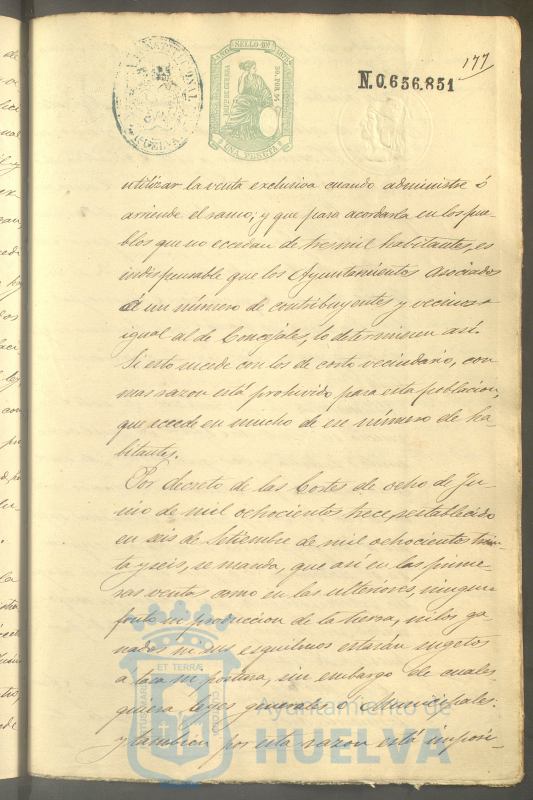 177
N.0.656.851
SELLO 11º
UNA PESETA
utilizar la venta exclusiva cuando administre ó
arriende el ramo; y que para acordarla en los pue-
blos que no eccedan de tres mil habitantes, es
indispensable que los Ayuntamientos asociados
de un número de contribuyentes y vecinos
igual al de Concejales, lo determinen así.
Si esto sucede con los de corto vecindario, con
mas razon está prohivido para esta poblacion,
que eccede en mucho de ese número de ha-
bitantes.
Por decreto de las Cortes de ocho de Ju-
nio de mil ochocientos trece, restablecido
en seis de Setiembre de mil ochocientos trein-
ta y seis, se manda, que así en las prime-
ras ventas como en las ulteriores, ningun
fruto ni produccion de la tierra, ni los ga-
nados ni sus esquilmos estarán sugetos
a tasa ni postura, sin embargo de cuales-
quiera leyes generales ó municipales.
y tambien por esta razon está imposi-
PORTUS MARIS
ET TERRÆ
CUSTODIA
Ayuntamiento de
HUELVA